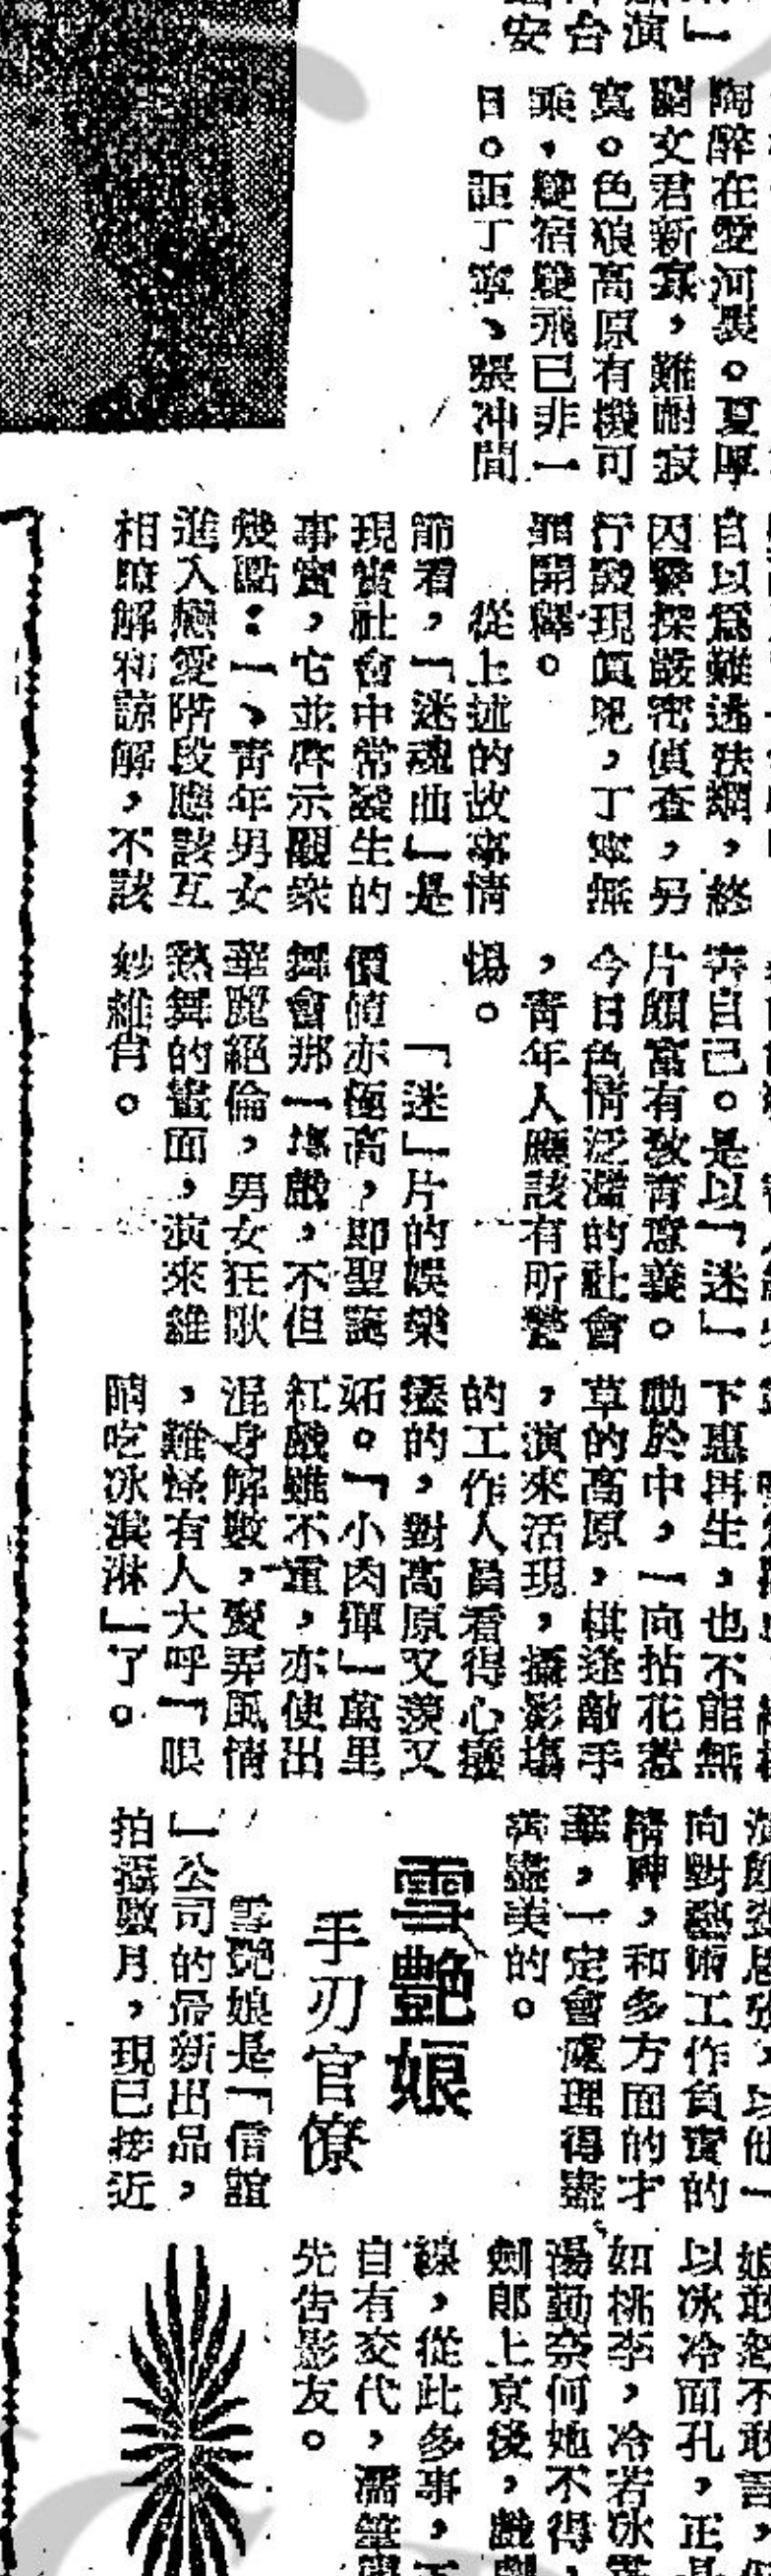 演
台
安
陶醉在愛河裏。夏厚
蘭文君新寡，難耐寂
寞。色狼高原有機可
乘，雙宿雙飛已非一
日。詎丁寧、張冲間
自以爲難逃法網，終
因警探嚴密偵查，另
行發現眞兇，丁寧無
罪開釋。
從上述的故事情
節看，「迷魂曲」是
現實社會中常發生的
事實，它並啓示觀衆
幾點：一、青年男女
進入戀愛階段應該互
相瞭解和諒解，不該
害自己。是以「迷」
片頗富有教育意義。
今日色情泛濫的社會
，青年人應該有所警
惕。
「迷」片的娛樂
價值亦極高，即聖誕
舞會那一塲戲，不但
華麗絕倫，男女狂歌
熱舞的畫面，演來維
妙維肖。
下惠再生，也不能無
動於中，一向拈花惹
草的高原，棋逢敵手
，演來活現，攝影塲
的工作人員看得心癢
癢的，對高原又羨又
妬。「小肉彈」萬里
紅戲雖不重，亦使出
混身解數，耍弄風情
，難怪有人大呼「眼
睛吃冰淇淋」了。
向對藝術工作負責的
精神，和多方面的才
華，一定會處理得盡
善盡美的。
雪艷娘
手刃官僚
雪艷娘是「信誼
」公司的最新出品，
拍攝數月，現已接近
娘敢怒不敢言，
以冰冷面孔，正是
如桃李，冷若冰霜
湯勤奈何她不得，
劍郎上京後，戲劇
線，從此多事，下
自有交代，濡筆
先告影友。